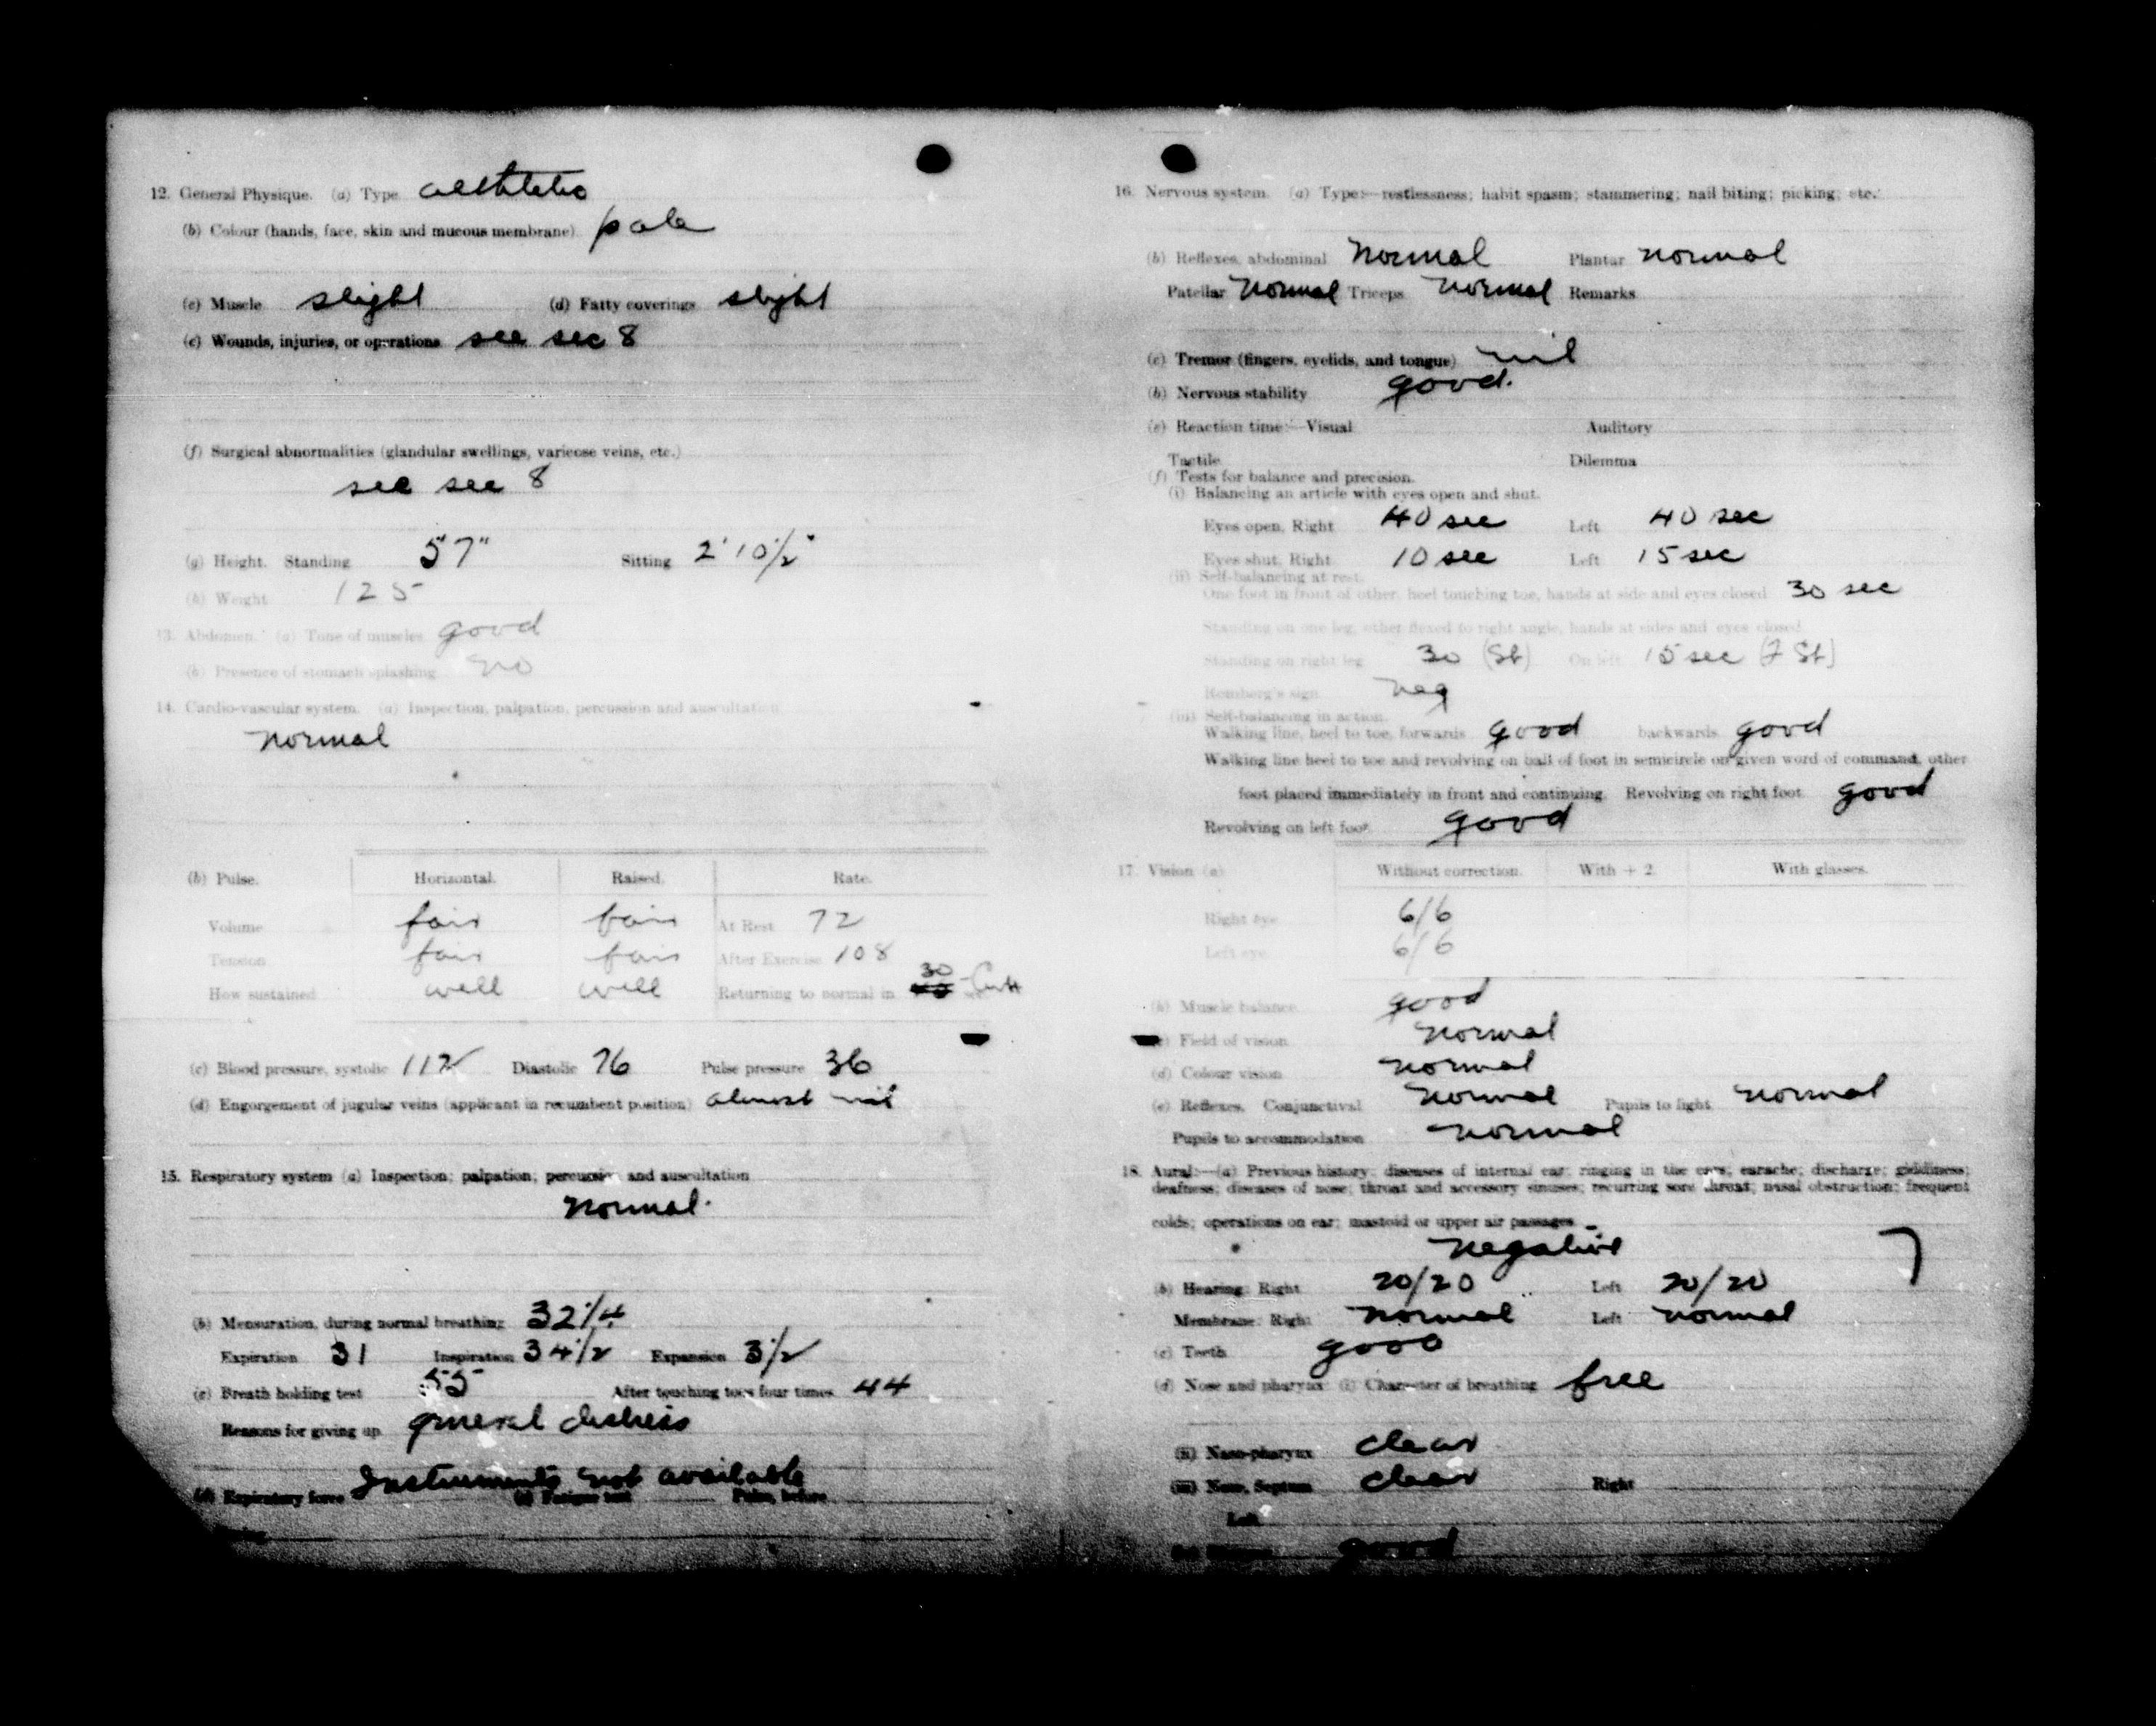 12. General Physique. (a) Type aethletic
(b) Colour (hands, face, skin and mucous membrane) pale
(c) Muscle slight (d) Fatty coverings slight
(e) Wounds, injuries, or operations see sec 8
(f) Surgical abnormalities (glandular swellings, varicose veins, etc.)
see sec 8
(g) Height. Standing 5'7" Sitting 2'10 1/2"
(h) Weight 125
13. Abdomen. (a) Tone of muscles good
(b) Presence of stomach splashing no
14. Cardio-vascular system. (a) Inspection, palpation, percussion and auscultation
normal
(b) Pulse. Horizontal. Raised. Rate.
Volume fair fair At Rest 72
Tension fair fair After Exercise 108
How sustained well well Returning to normal in 30
(c) Blood pressure, systolic 112 Diastolic 76 Pulse pressure 36
(d) Engorgement of jugular veins (applicant in recumbent position) almost nil
15. Respiratory system (a) Inspection; palpation; percussion and auscultation
normal.
(b) Mensuration, during normal breathing 32 1/4
Expiration 31 Inspiration 34 1/2 Expansion 3 1/2
(c) Breath holding test 55 After touching toes four times 44
Reasons for giving up general distress
(d) Expiratory force Instruments not available (e) Fatigue test Pulse, before
16. Nervous system. (a) Type:—restlessness; habit spasm; stammering; nail biting; picking; etc.
(b) Reflexes, abdominal normal Plantar normal
Patellar normal Triceps normal Remarks
(c) Tremor (fingers, eyelids, and tongue) nil
(h) Nervous stability good.
(e) Reaction time:—Visual Auditory
Tactile Dilemma
(f) Tests for balance and precision.
(i) Balancing an article with eyes open and shut.
Eyes open, Right 40 sec Left 40 sec
Eyes shut, Right 10 sec Left 15 sec
(ii) Self-balancing at rest.
One foot in front of other, heel touching toe, hands at side and eyes closed 30 sec
Standing on one leg, other flexed to right angle, hands at sides and eyes closed
Standing on right leg 30 (St) On left 15 sec (F St)
Romberg's sign neg
(iii) Self-balancing in action.
Walking line, heel to toe, forwards good backwards good
Walking line heel to toe and revolving on ball of foot in semicircle on given word of command, other
foot placed immediately in front and continuing. Revolving on right foot good
Revolving on left foot good
17. Vision (a) Without correction. With + 2. With glasses.
Right eye 6/6
Left eye 6/6
(b) Muscle balance good
(c) Field of vision normal
(d) Colour vision normal
(e) Reflexes. Conjunctival normal Pupils to light normal
Pupils to accommodation normal
18. Aural:—(a) Previous history: diseases of internal ear; ringing in the ears; earache; discharge; giddiness;
deafness; diseases of nose; throat and accessory sinuses; recurring sore throat; nasal obstruction; frequent
colds; operations on ear; mastoid or upper air passages
negative
(b) Hearing: Right 20/20 Left 20/20
Membrane: Right normal Left normal
(c) Teeth good
(d) Nose and pharynx: (i) Character of breathing free
(ii) Naso-pharynx clear
(iii) Nose, Septum clear Right
Left
good